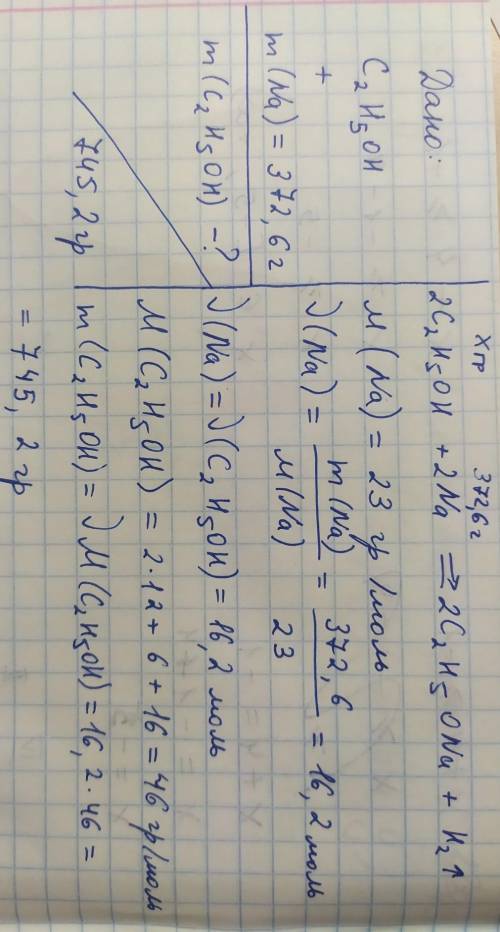 Дано:
C₂H₅OH
+
m(Na) = 372,6г
m(C₂H₅OH) -?
745,2гр
Xгр 372,6г
2C₂H₅OH + 2Na ⇒ 2C₂H₅ONa + H₂↑
M(Na) = 23 гр/моль
ν(Na) = m(Na)/M(Na) = 372,6/23 = 16,2 моль
ν(Na) = ν(C₂H₅OH) = 16,2 моль
M(C₂H₅OH) = 2·12 + 6 + 16 = 46 гр/моль
m(C₂H₅OH) = νM(C₂H₅OH) = 16,2·46 =
= 745,2 гр